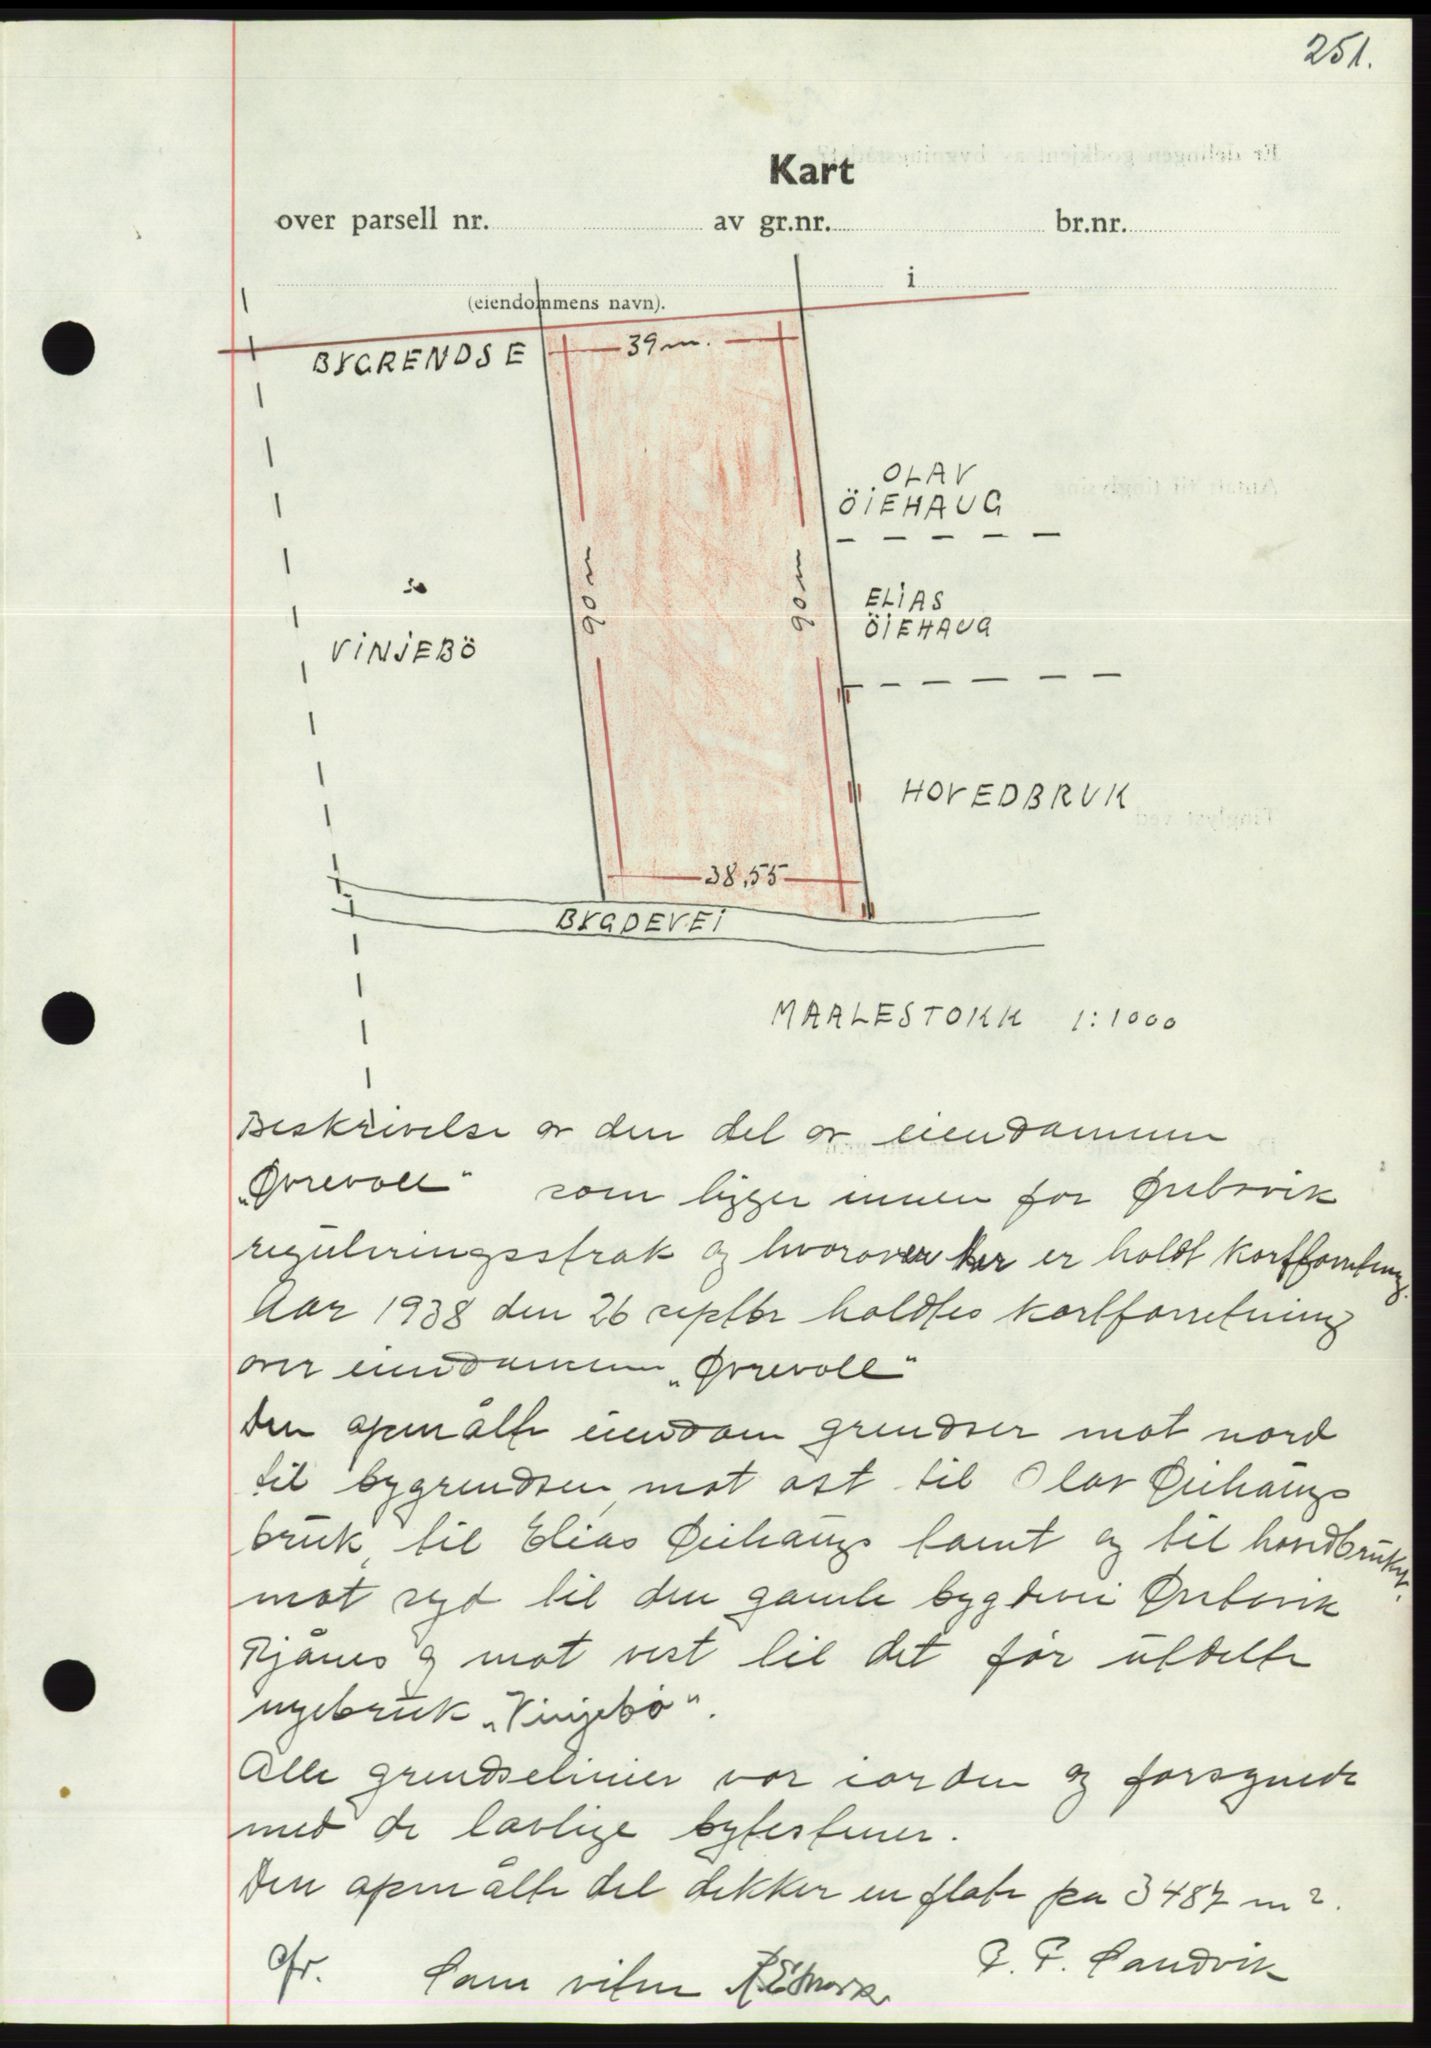 251.
Kart
over parsell nr. av gr.nr. br.nr.
i
(eiendommens navn).
BYGRENDSE
39 m.
OLAV
ÖIEHAUG
90 m
90 m
ELIAS
ÖIEHAUG
VINJEBÖ
HOVEDBRUK
38,55
BYGDEVEI
MAALESTOKK 1:1000
Beskrivelse av den del av eiendommen
„Øvrevoll" som ligger innen for Ørstavik
reguleringsstrøk og hvorover her er holdt kartforretning.
Aar 1938 den 26 septbr holdtes kartforretning
over eiendommen „Øvrevoll"
Den opmålte eiendom grendser mot nord
til bygrendsen, mot øst til Olav Øiehaugs
bruk, til Elias Øiehaugs tomt og til hovedbruket.
mot syd til den gamle bygdevei Ørstavik
Rjånes og mot vest til det før utdelte
nyebruk „Vinjebø".
Alle grendselinier var i orden og forsynede
med de lovlige bytestener.
Den opmålte del dekker en flate på 3487 m².
Som vitne
P. P. Sandvik